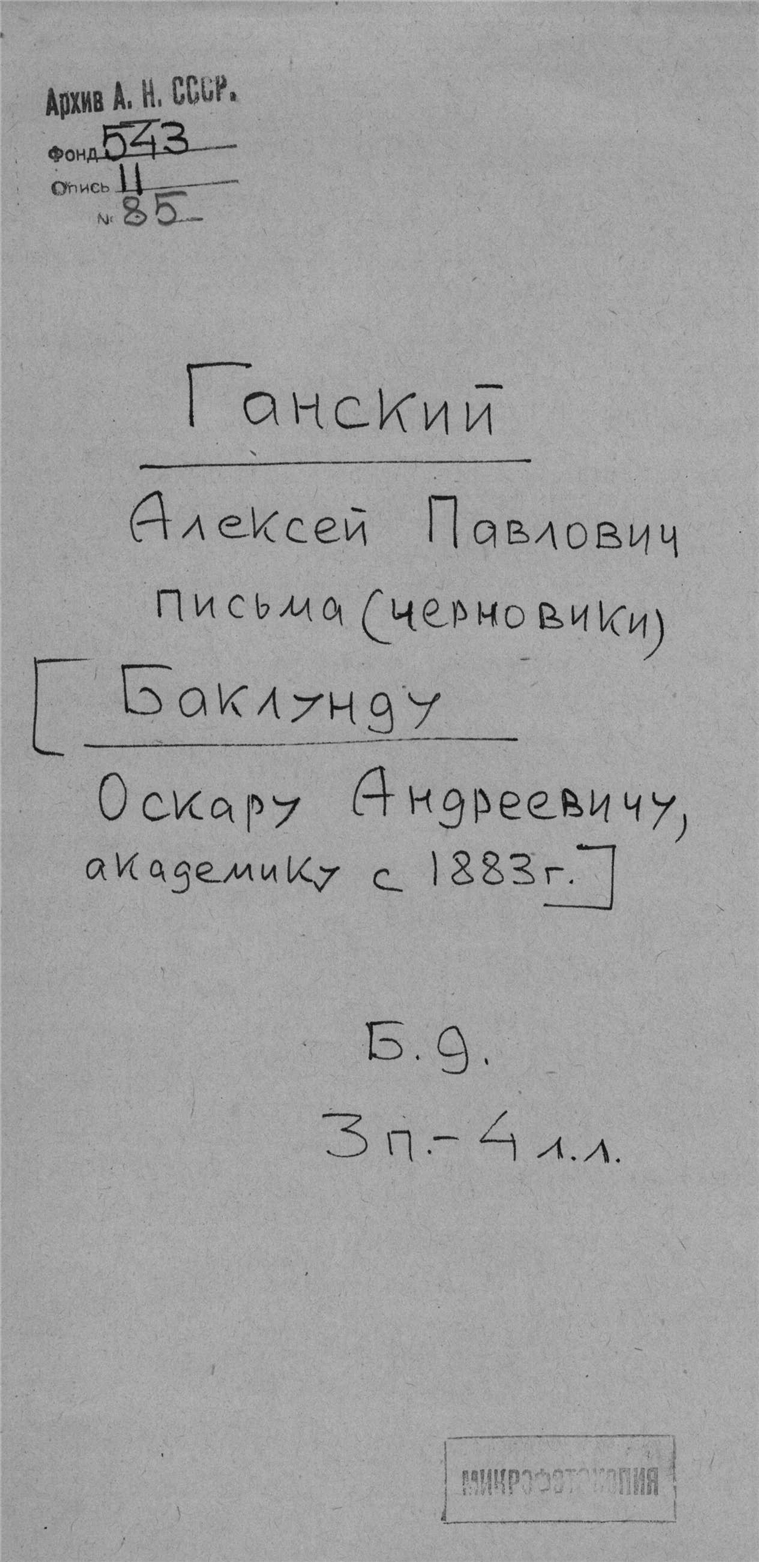 Архив А. Н. СССР.
Фонд 543
Опись 11
№ 85
Ганский
Алексей Павлович
письма (черновики)
[Баклунду
Оскару Андреевичу,
академику с 1883г.]
Б.д.
3 п.- 4 л.л.
МИКРОФОТОКОПИЯ